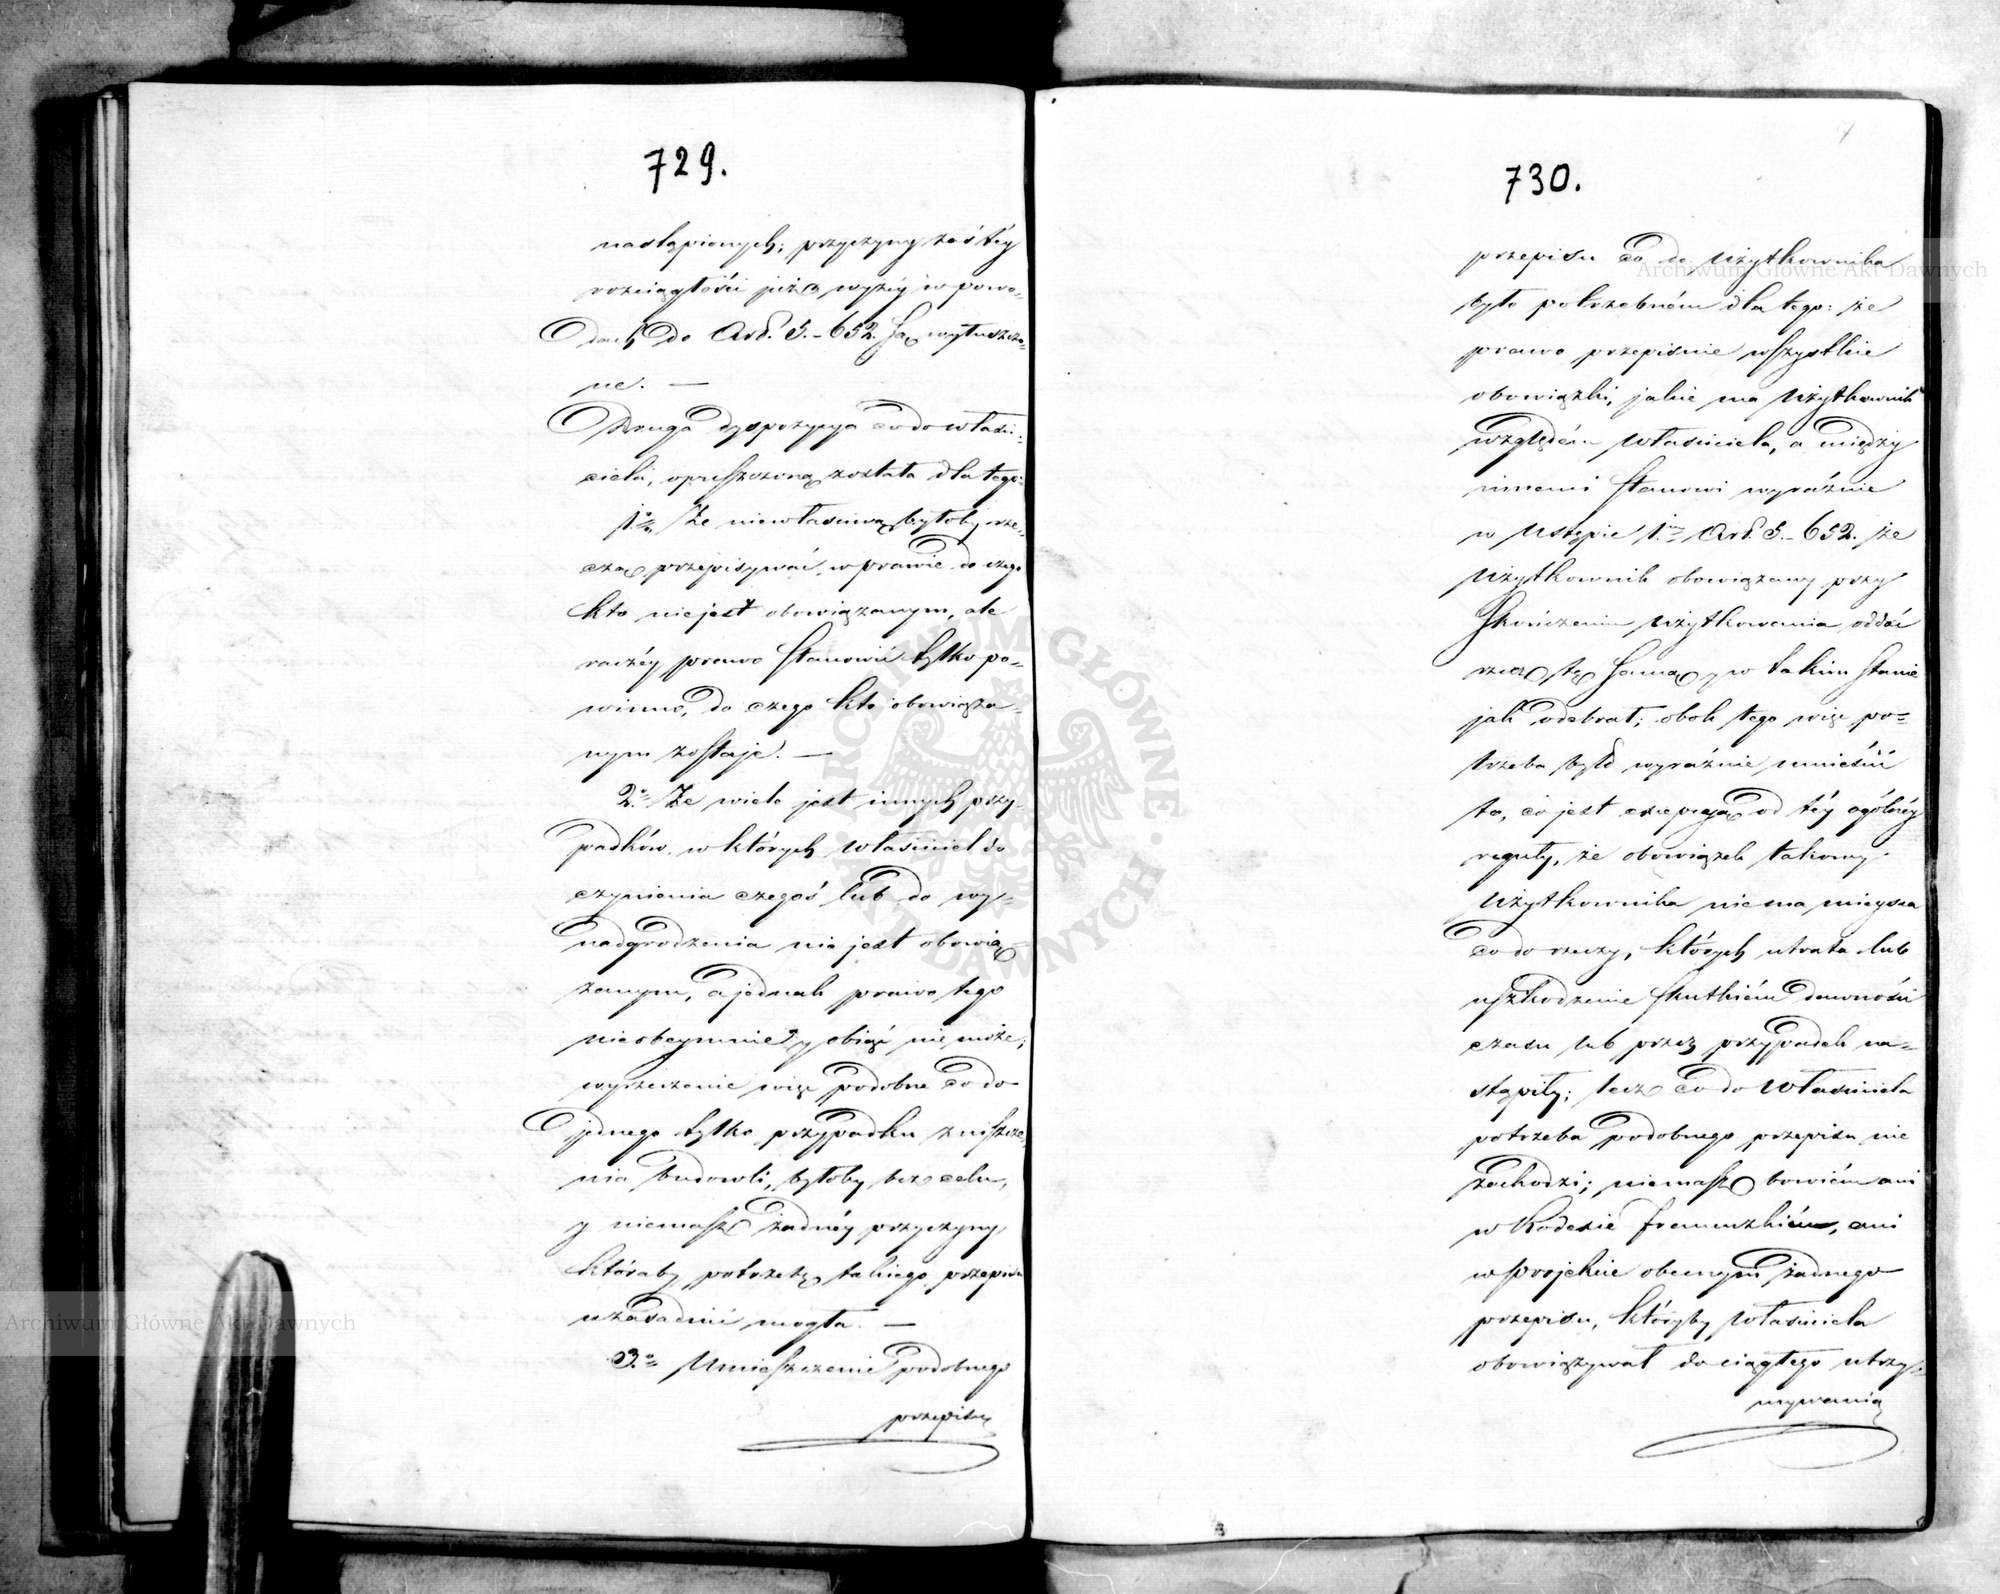 729.
nastąpionych; przyczyny zaś téy
rozciągłości już wyżéy w powo-
dach do Art. 5.-652. są wyłuszczo-
ne. —
Druga dyspozycya co do właści-
ciela, opuszczoną została dla tego:
1o Że niewłaściwą byłoby rze-
czą przepisywać w prawie do czego
kto nie jest obowiązanym, ale
raczéy prawo stanowić tylko po-
winno, do czego kto obowiąza-
nym zostaje. —
2o Że wiele jest innych przy-
padków, w których właściciel do
czynienia czegoś lub do wy-
nadgrodzenia nie jest obowią
zanym, a jednak prawo tego
nieobeymuie y obiąć nie może;
wyrzeczenie więc podobne co do
jednego tylko przypadku zniszcze-
nia budowli, byłoby bez celu,
y niemasz żadnéy przyczyny,
któraby potrzebę takiego przepisu
uzasadnić mogła. —
3o Umieszczenie podobnego
przepisu
730.
przepisu co do użytkownika
było potrzebném dla tego: że
prawo przepisuie wszystkie
obowiązki, jakie ma użytkownik
względem właściciela, a między
innemi stanowi wyraźnie
w ustępie 1m Art. 5.-652. że
użytkownik obowiązany przy
skończeniu użytkowania oddać
rzecz tę samą y w takim stanie
jak odebrał; obok tego więc po-
trzeba było wyraźnie umieścić
to, co jest excepcyą od téy ogólnéy
reguły, że obowiązek takowy
użytkownika niema mieysca
co do rzeczy, których utrata lub
uszkodzenie skutkiém dawności
czasu lub przez przypadek na-
stąpiły; lecz co do właściciela
potrzeba podobnego przepisu nie
zachodzi; niemasz bowiém ani
w Kodexie francuzkiém, ani
w projekcie obecnym żadnego
przepisu, któryby właściciela
obowiązywał do ciągłego utrzy-
mywania
Archiwum Główne Akt Dawnych
Archiwum Główne Akt Dawnych
ARCHIWUM GŁÓWNE AKT DAWNYCH